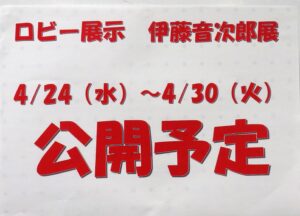 ロビー展示　伊藤音次郎展
4/24（水）～4/30（火）
公開予定